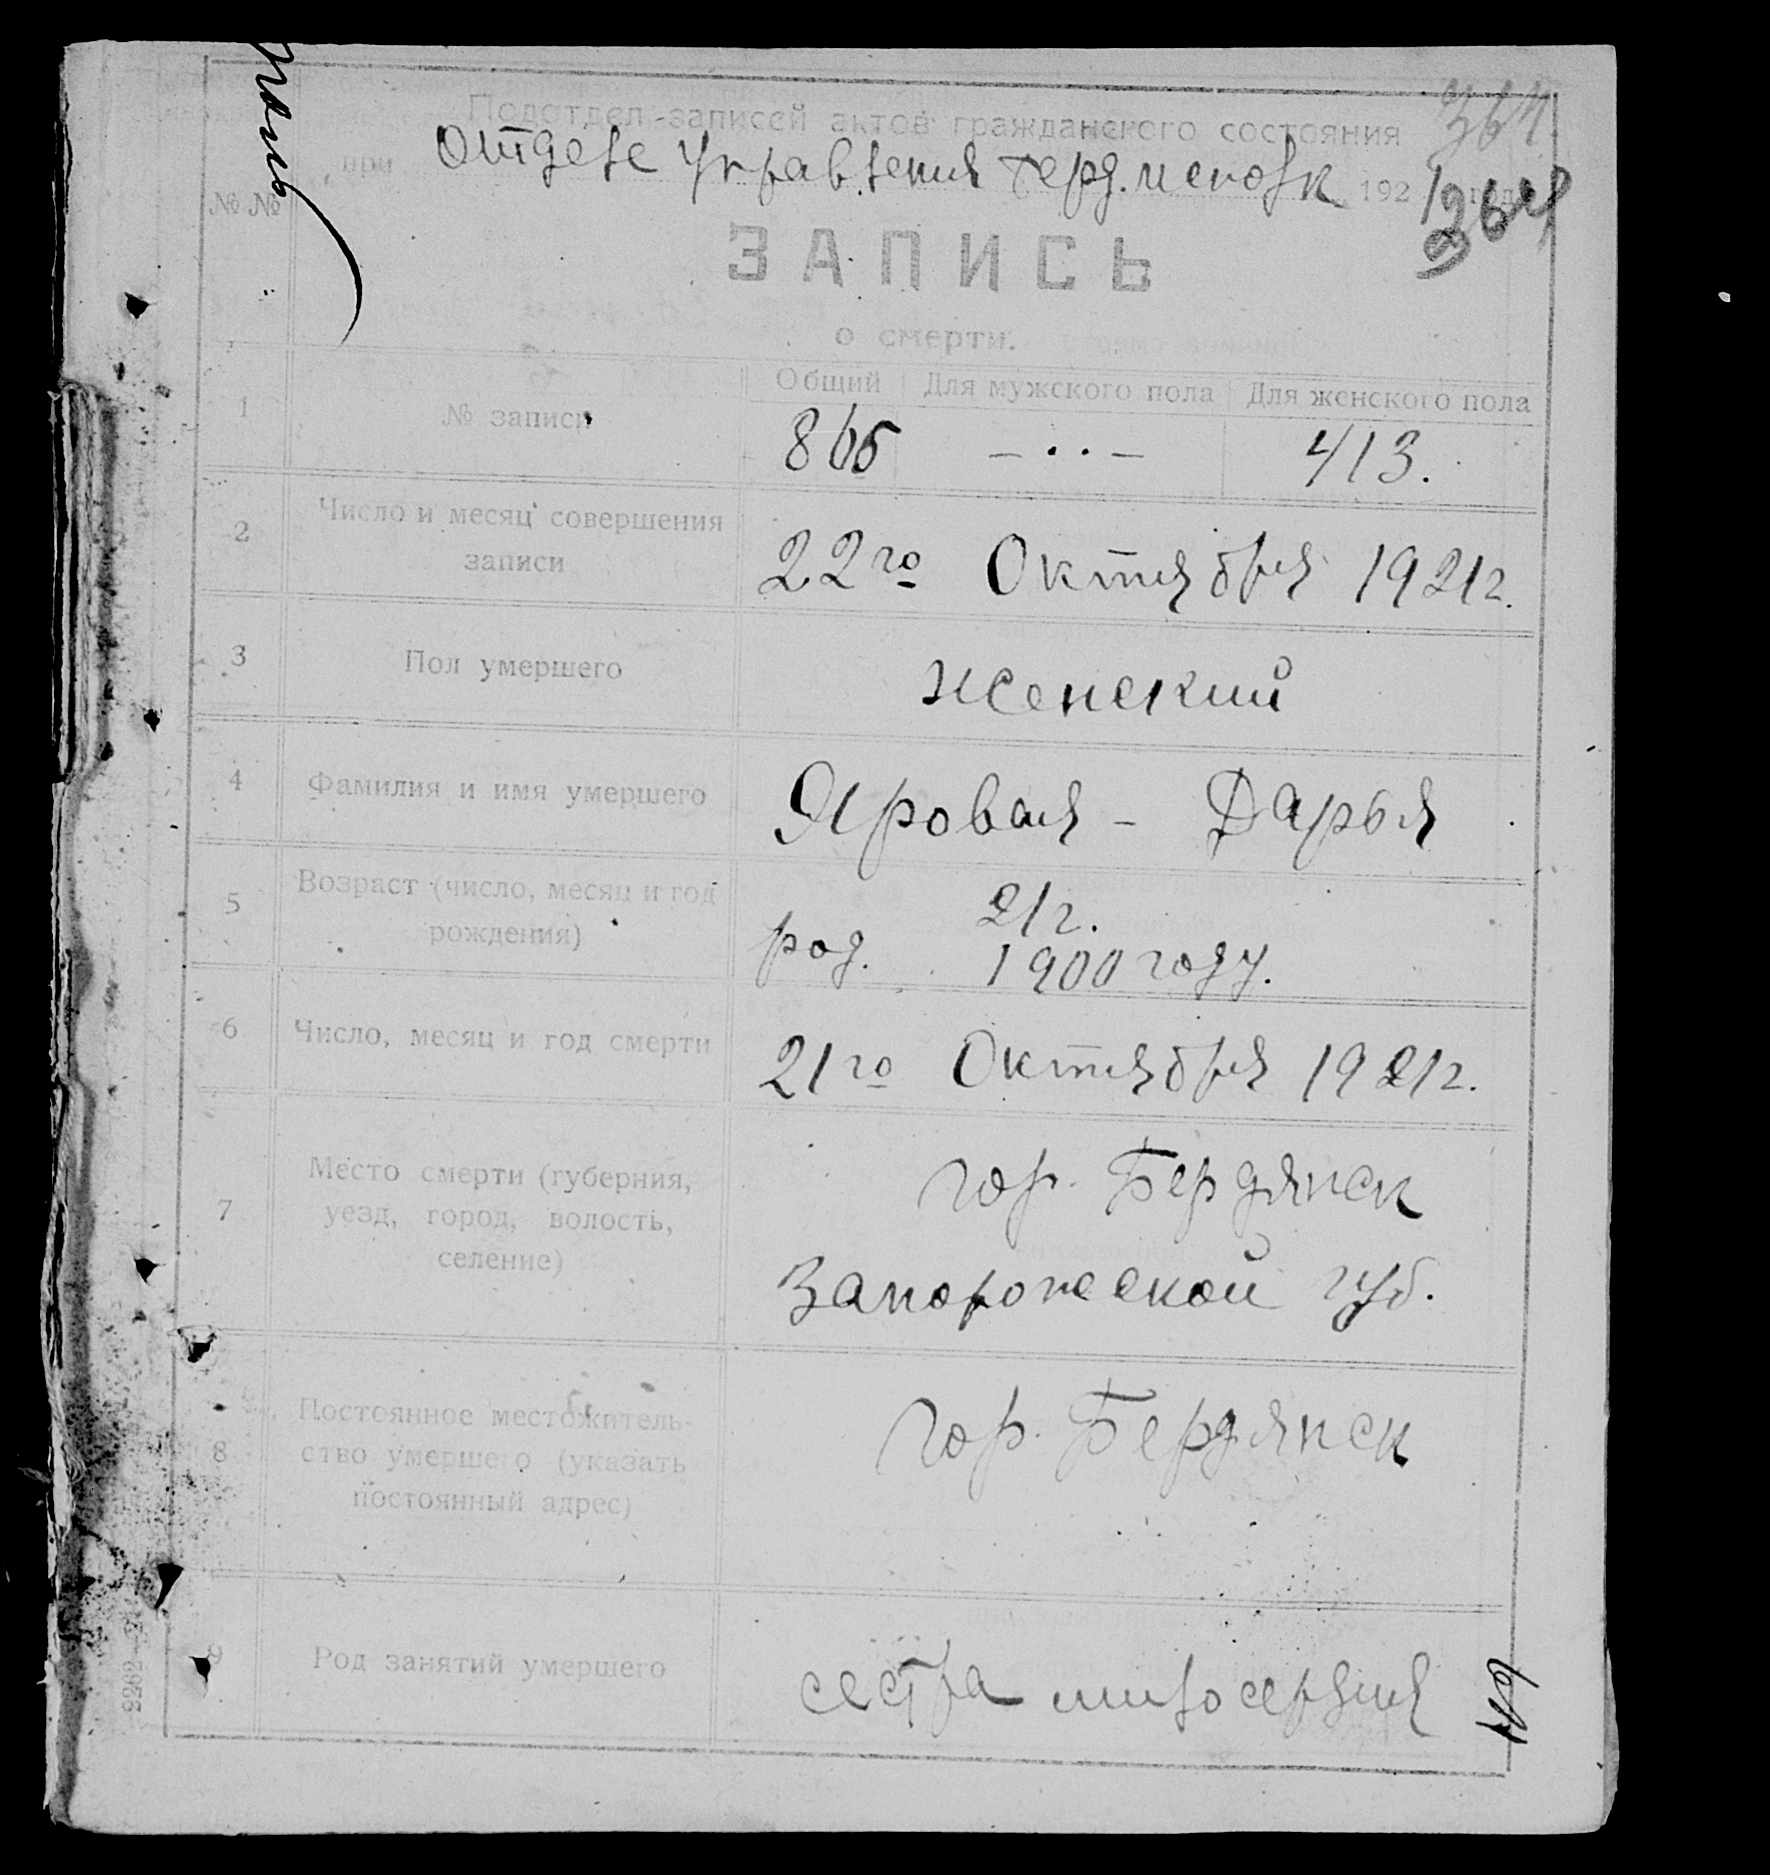 364
Подотдел записей актов гражданского состояния
при Отделе Управления Берд. исполк 1921 года
364
№ №
ЗАПИСЬ
о смерти.
Общий Для мужского пола Для женского пола
1 № записи 865 – · · – 413.
2 Число и месяц совершения
записи
22го Октября 1921г.
3 Пол умершего женский
4 Фамилия и имя умершего Яровая - Дарья
5 Возраст (число, месяц и год
рождения)
21г.
род. 1900 году.
6 Число, месяц и год смерти 21го Октября 1921г.
7 Место смерти (губерния,
уезд, город, волость,
селение)
гор. Бердянск
Запорожской губ.
8 Постоянное местожитель-
ство умершего (указать
постоянный адрес)
гор. Бердянск
9 Род занятий умершего сестра милосердия